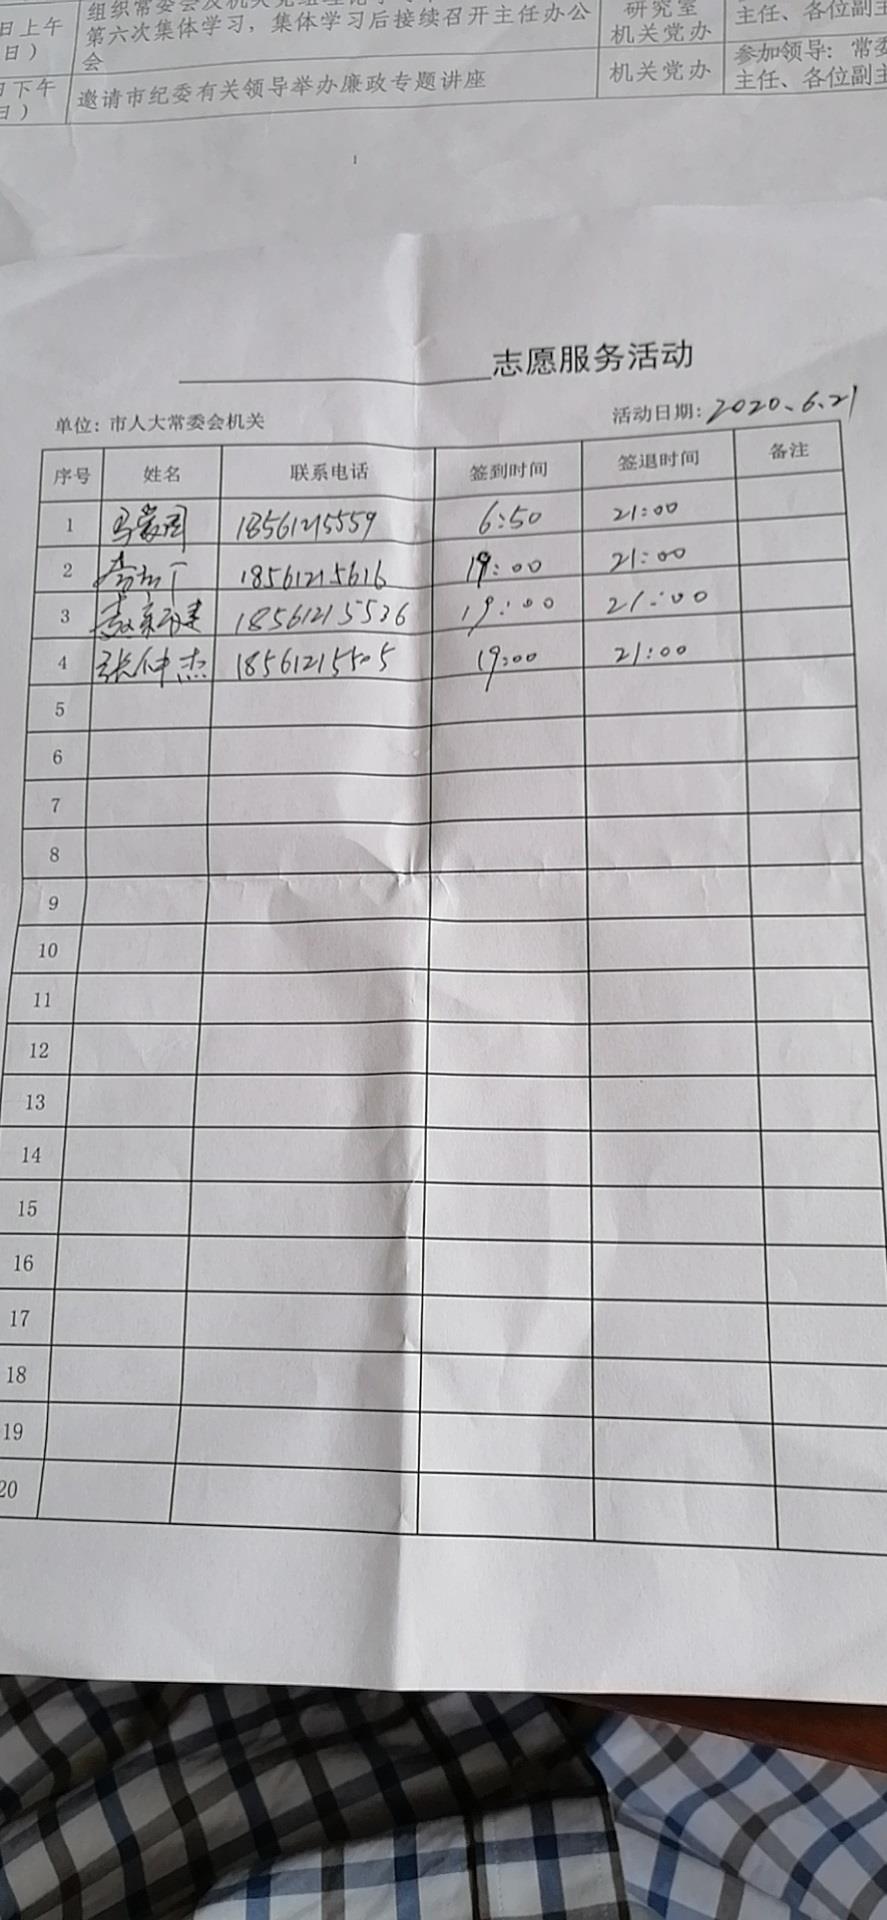 日上午
日）
第六次集体学习，集体学习后接续召开主任办公
会
研究室
机关党办
主任、各位副主
日下午
日）
邀请市纪委有关领导举办廉政专题讲座
机关党办
参加领导：常委
主任、各位副主
1
志愿服务活动
单位：市人大常委会机关 活动日期：2020.6.21
序号 姓名 联系电话 签到时间 签退时间 备注
1 18561215559 6:50 21:00
2 18561215616 19:00 21:00
3 18561215526 19:00 21:00
4 张仲杰 18561215505 19:00 21:00
5
6
7
8
9
10
11
12
13
14
15
16
17
18
19
20